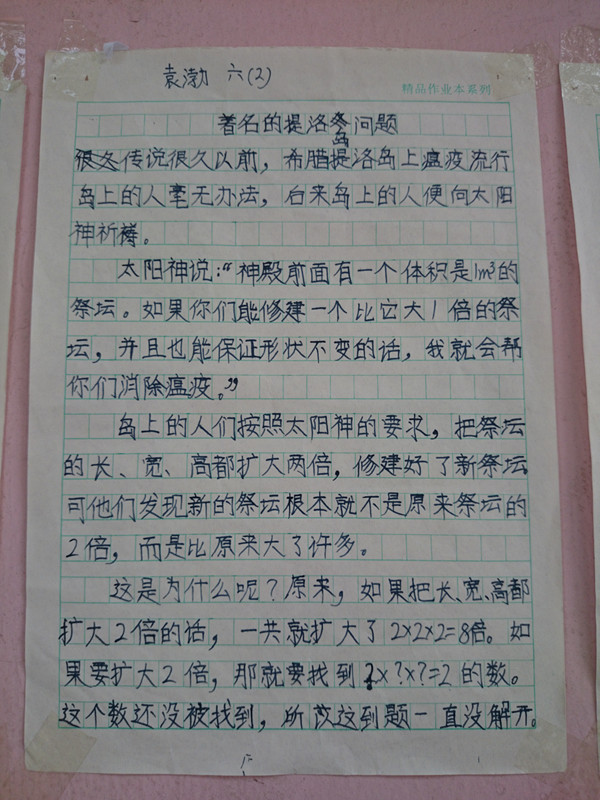 袁渤 六(2)
精品作业本系列
著名的提洛岛问题
传说很久以前，希腊提洛岛上瘟疫流行
岛上的人毫无办法，后来岛上的人便向太阳
神祈祷。
太阳神说：“神殿前面有一个体积是1m³的
祭坛。如果你们能修建一个比它大1倍的祭
坛，并且也能保证形状不变的话，我就会帮
你们消除瘟疫。”
岛上的人们按照太阳神的要求，把祭坛
的长、宽、高都扩大两倍，修建好了新祭坛
可他们发现新的祭坛根本就不是原来祭坛的
2倍，而是比原来大了许多。
这是为什么呢？原来，如果把长、宽、高都
扩大2倍的话，一共就扩大了2×2×2=8倍。如
果要扩大2倍，那就要找到?×?×?=2的数。
这个数还没被找到，所以这到题一直没解开。